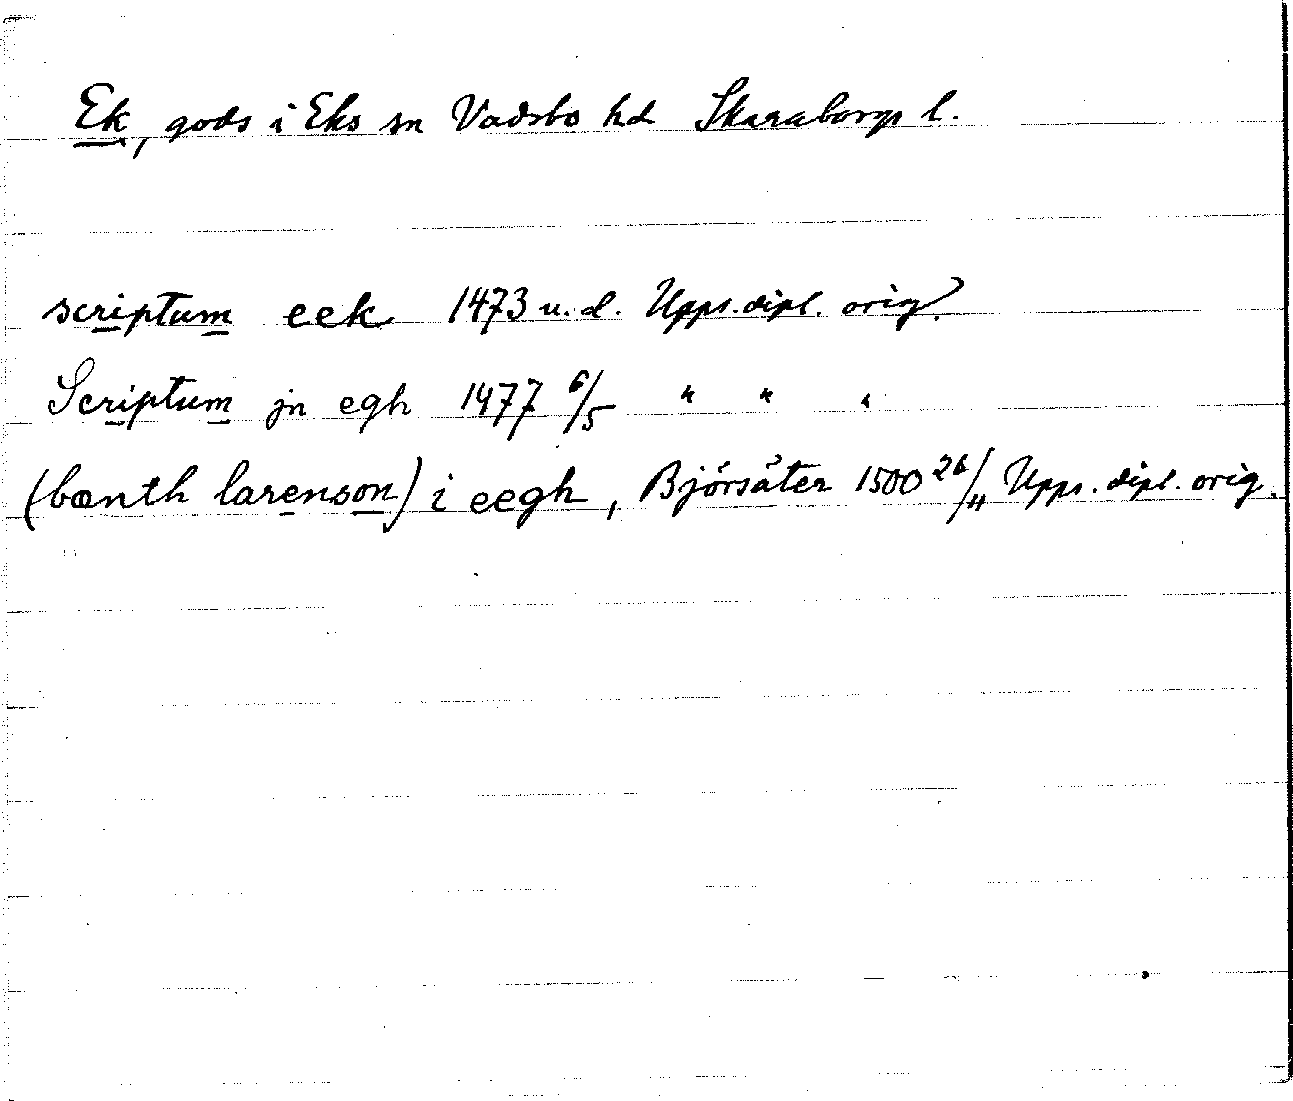 Ek, gods i Eks sn Vadsbo hd Skaraborgs l.
scriptum eek 1473 u. d. Upps. dipl. orig?
Scriptum jn egh 1477 6/5 " " "
(bænth larenson) i eegh, Björsäter 1500 26/11 Upps. dipl. orig.